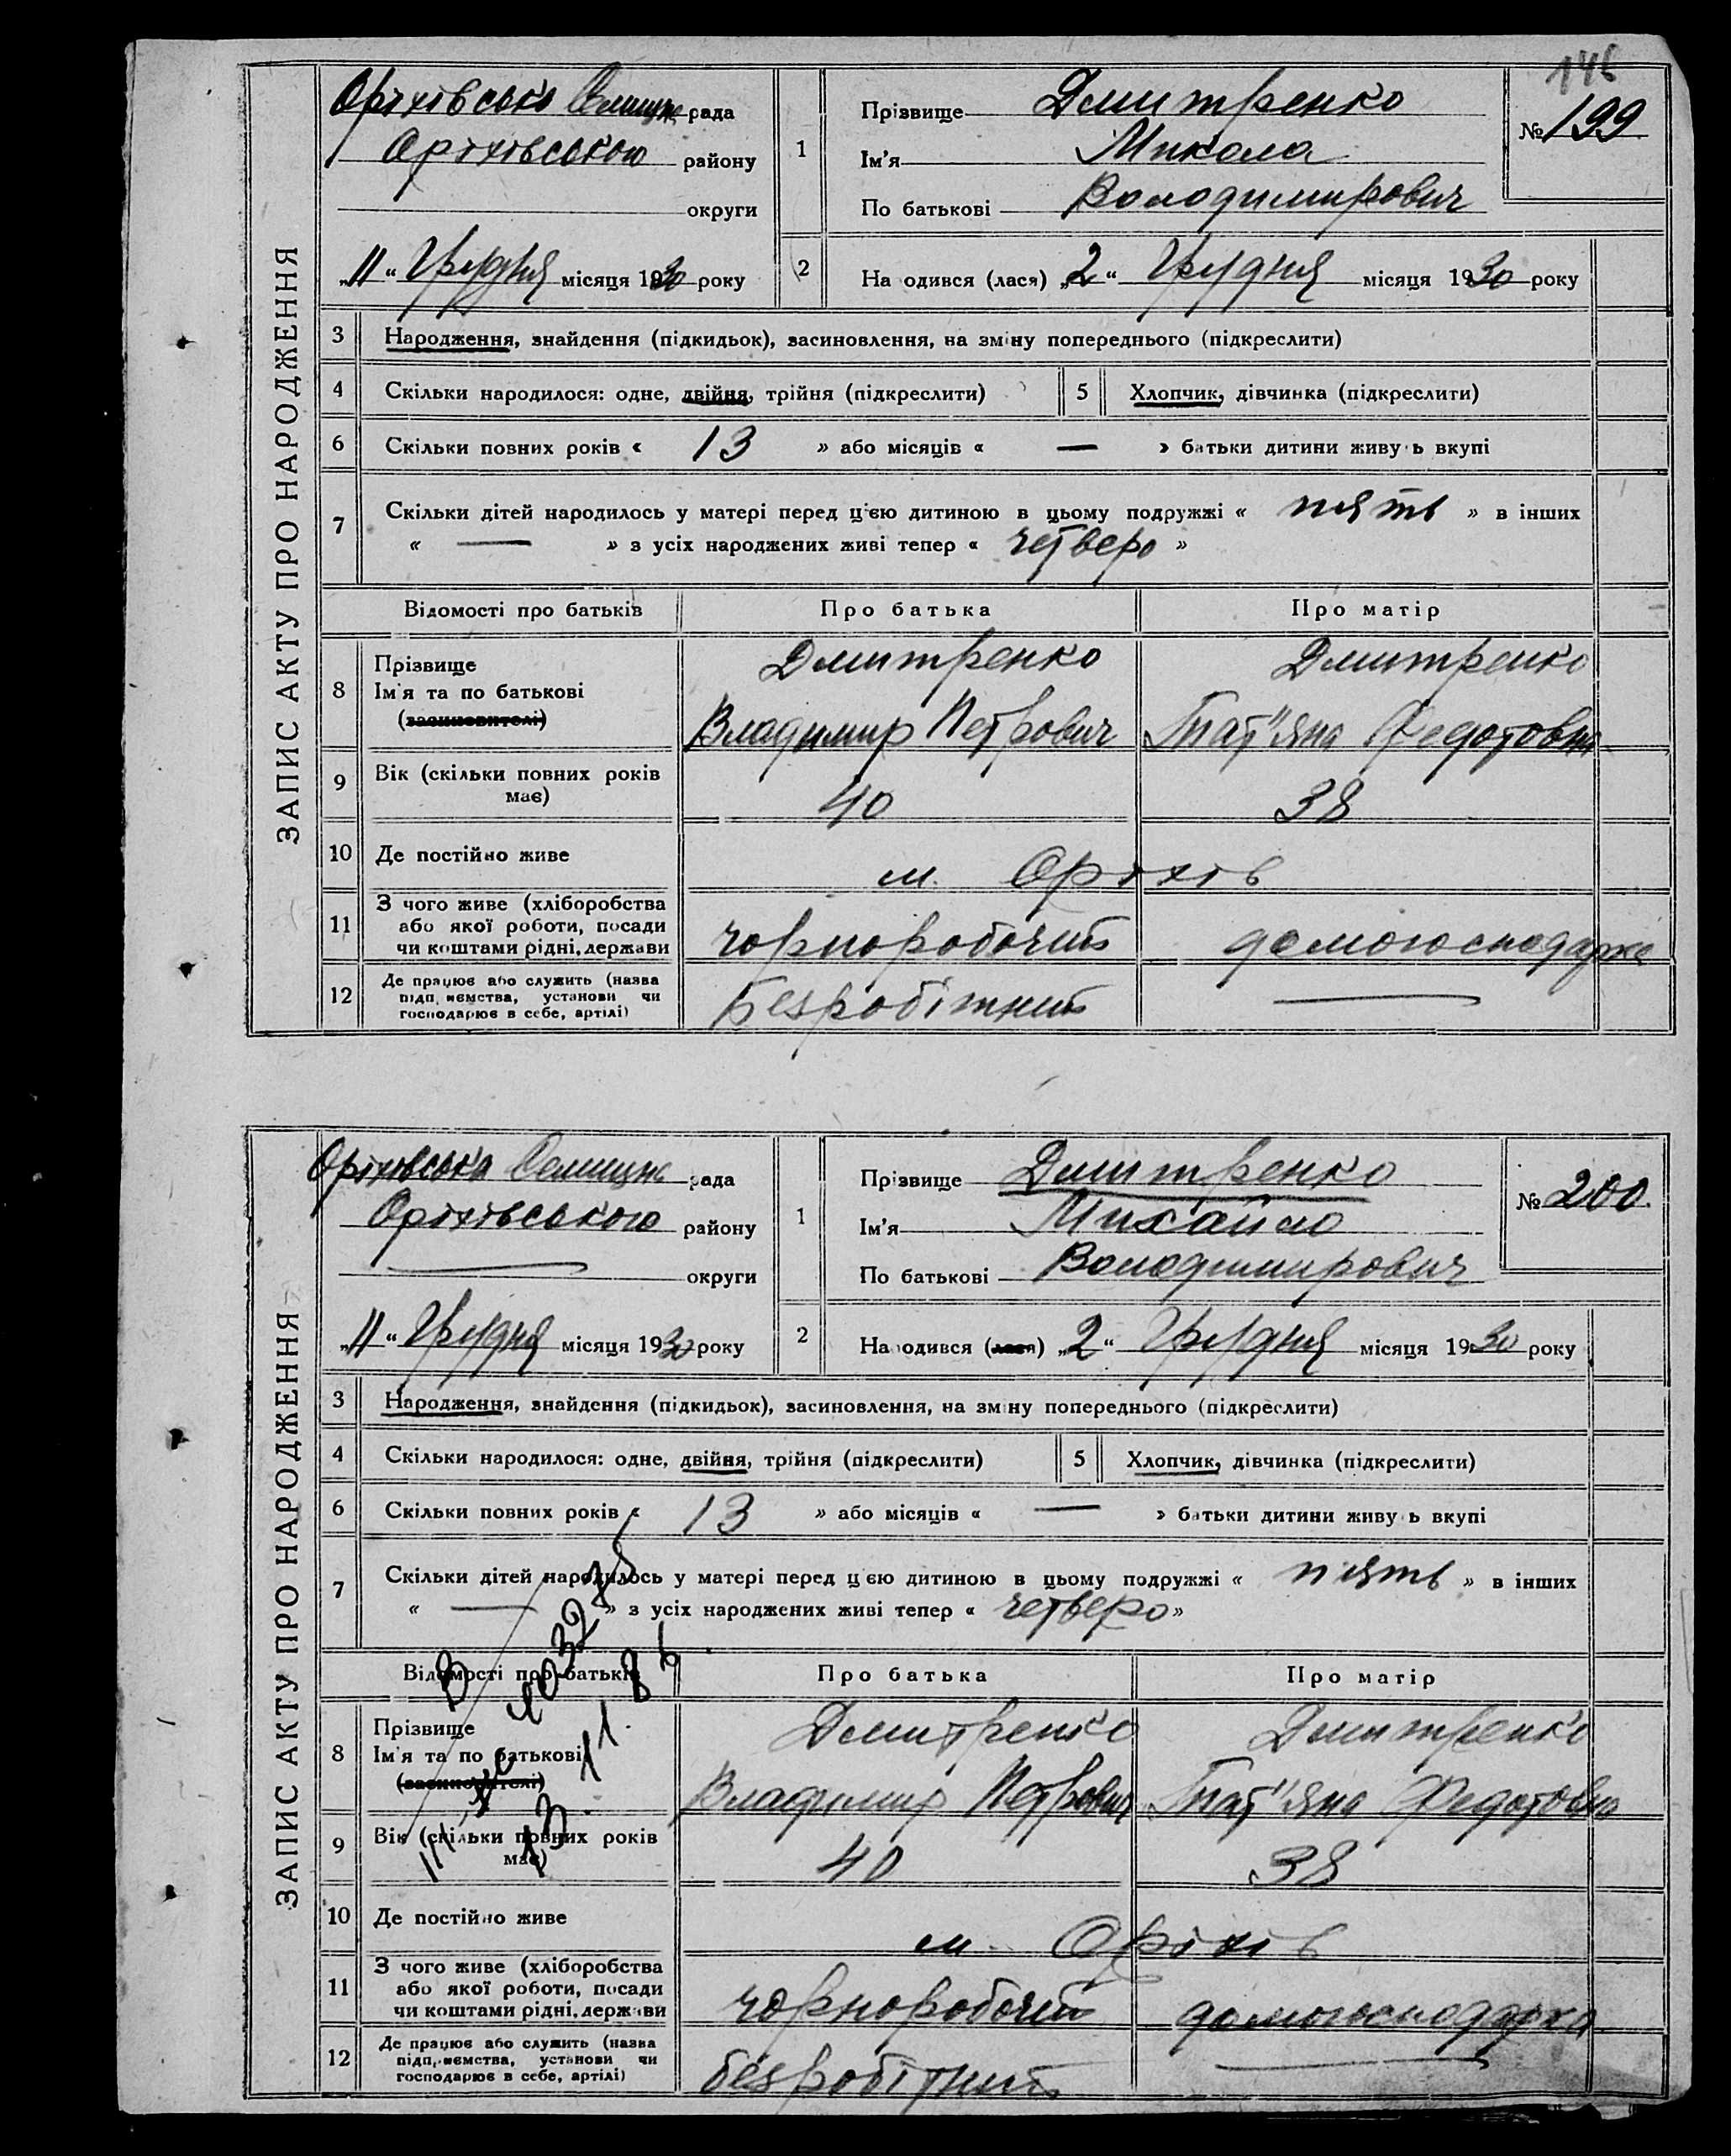 146
ЗАПИС АКТУ ПРО НАРОДЖЕННЯ
Оріхівська Селищна рада
Оріхівського району
округи
„11“ Грудня місяця 1930 року
1 Прізвище Дмитренко
Ім'я Микола
По батькові Володимирович
№ 199
2 На одився (лася) „2“ Грудня місяця 1930 року
3 Народження, знайдення (підкидьок), засиновлення, на зміну попереднього (підкреслити)
4 Скільки народилося: одне, двійня, трійня (підкреслити) 5 Хлопчик, дівчинка (підкреслити)
6 Скільки повних років « 13 » або місяців « — » батьки дитини живу ь вкупі
7 Скільки дітей народилось у матері перед цією дитиною в цьому подружжі « пять » в інших
« — » з усіх народжених живі тепер « четверо »
Відомості про батьків Про батька Про матір
8 Прізвище Дмитренко Дмитренко
Ім'я та по батькові Владимир Петрович Тат"яна Федотовна
(засиновителі)
9 Вік (скільки повних років має) 40 38
10 Де постійно живе м. Оріхів
11 З чого живе (хліборобства
або якої роботи, посади
чи коштами рідні, держави чорноробочий домогосподарка
12 Де працює або служить (назва
підп. иємства, установи чи
господарює в себе, артілі) Безробітний —
ЗАПИС АКТУ ПРО НАРОДЖЕННЯ
Оріхівська Селищна рада
Оріхівського району
— округи
„11“ Грудня місяця 1930 року
1 Прізвище Дмитренко
Ім'я Михайло
По батькові Володимирович
№ 200.
2 На одився (лася) „2“ Грудня місяця 1930 року
3 Народження, знайдення (підкидьок), засиновлення, на зміну попереднього (підкреслити)
4 Скільки народилося: одне, двійня, трійня (підкреслити) 5 Хлопчик, дівчинка (підкреслити)
6 Скільки повних років « 13 » або місяців « — » батьки дитини живу ь вкупі
7 Скільки дітей народилось у матері перед цією дитиною в цьому подружжі « п'ять » в інших
« — » з усіх народжених живі тепер « четверо »
Відомості про батьків Про батька Про матір
8 Прізвище Дмитренко Дмитренко
Ім'я та по батькові Владимир Петрович Тат"яна Федотовна
(засиновителі)
9 Вік (скільки повних років має) 40 38
10 Де постійно живе м. Оріхів
11 З чого живе (хліборобства
або якої роботи, посади
чи коштами рідні, держави чорноробочий домогосподарка
12 Де працює або служить (назва
підп. иємства, установи чи
господарює в себе, артілі) безробітний —
13. 11. 86.